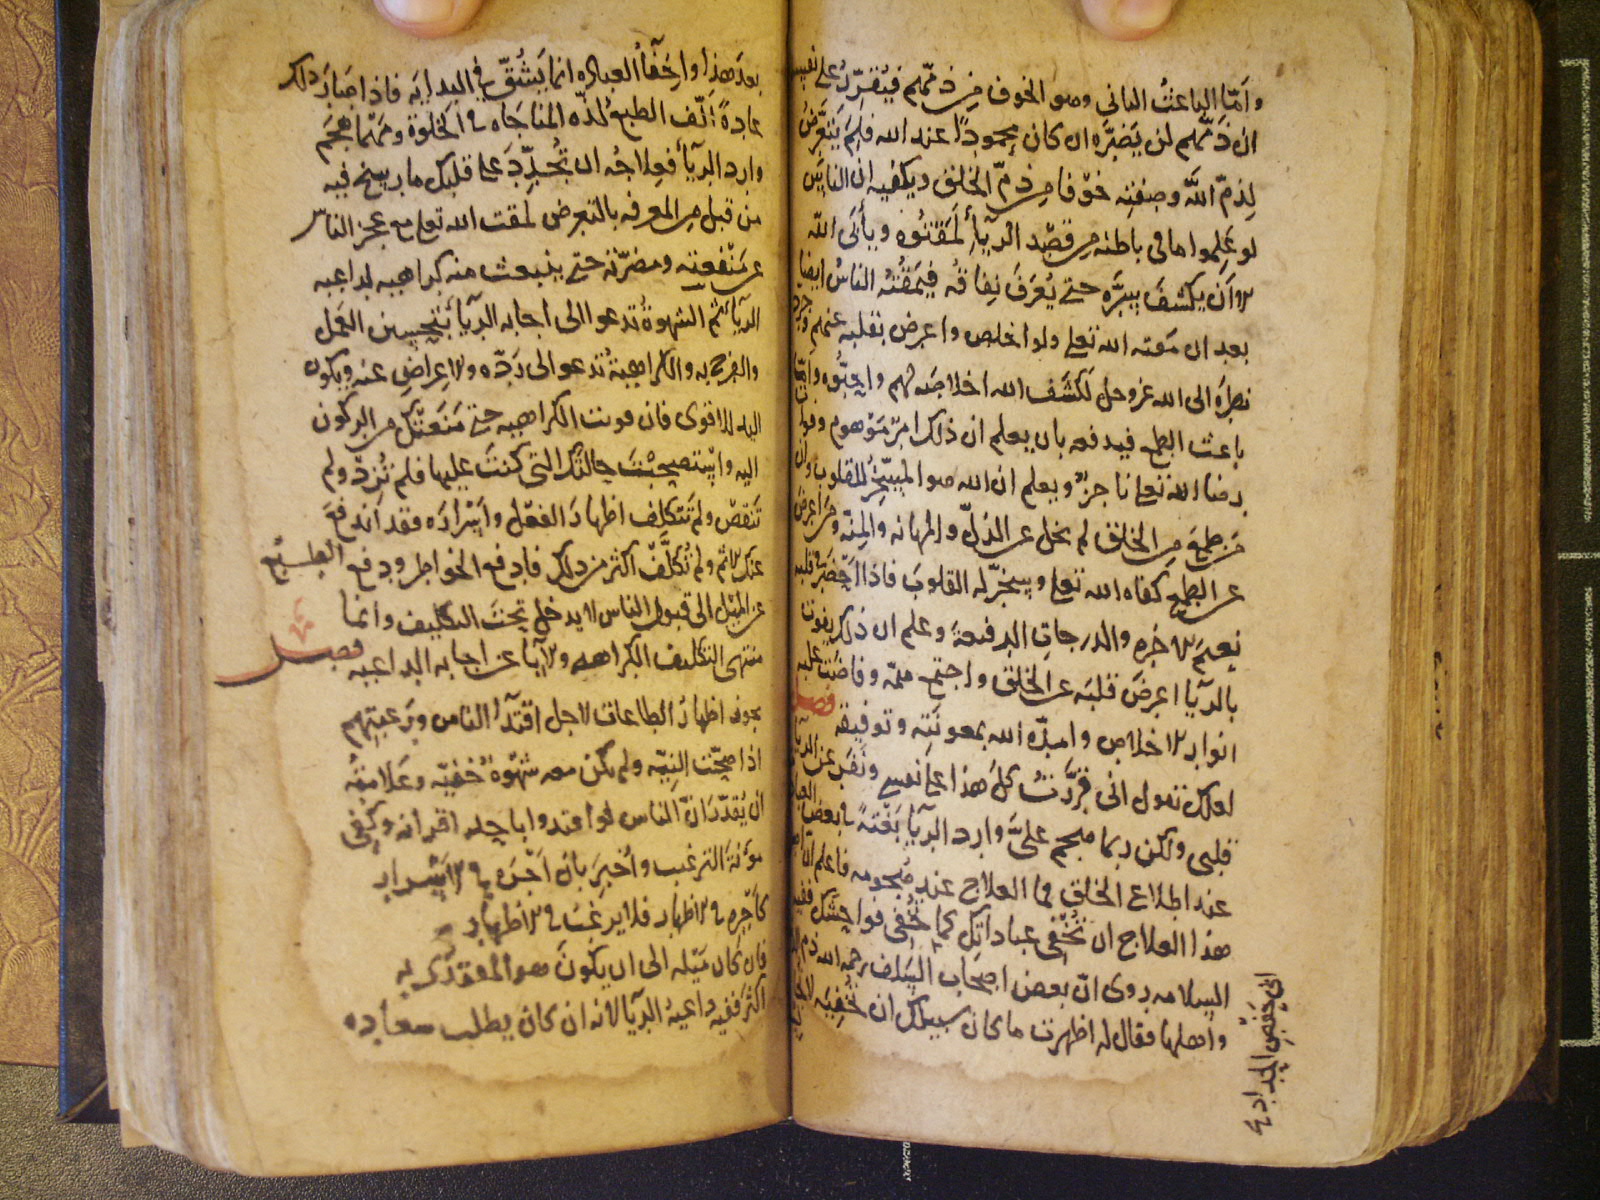 وأمّا الباعث الثاني وهو الخوف من ذمّهم فيُقرّر على نفسه
ان ذمّهم لن يضرّه ان كان محمودًا عند الله فلِمَ يتعرّض
لذمّ الله ومقته خوفا من ذمّ الخلق ويكفيه ان الناس
لو علموا ما في باطنه من قصد الريآء لمقتوه ويأبى الله
الا أن يكشف سرّه حتى يُعرف نفاقه فيمقته الناس ايضا
بعد ان مقته الله تعلى ولو اخلص واعرض بقلبه عنهم وجرد
نظره الى الله عز وجل لكشف الله اخلاصه لهم واحبّوه وأمّا
باعث الطمع فيدفعه بان يعلم ان ذلك امرٌ موهوم وفوات
رضا الله تعلى ناجزٌ ويعلم ان الله هو المسخّر للقلوب وان
من طمع من الخلق لم يخل عن الذلّ والمهانه والمنّه ومن أعرض
عن الطمع كفاه الله تعلى وسخّر له القلوب فاذا احضر في قلبه
نعيم الاخره والدرجات الرفيعة وعلم ان ذلك يفوت
بالريآ اعرض قلبه عن الخلق واجتمع همّه وفاضت عليه
انوار الاخلاص وامدّه الله بمعونته وتوفيقه فصل
لعلك تقول انى قرّرت كل هذا على نفسي ونفر عن الريآ
قلبي ولكن ربما هجم علىّ وارد الريآ بغتةً في بعض
عند اطلاع الخلق فما العلاج عند هجومه فاعلم ان
هذا العلاج ان تُخفى عباداتك كما تُخفى فواحشك ففيه
السلامه روى انّ بعض اصحاب السلف رحمه الله ذم
وأهلها فقال له اظهرت ما كان سبيلك ان تخفيه
ابي حفص الحداد
بعد هذا واخفآء العباده انما يشقّ في البدايه فاذا صار ذلك
عادةً الّف الطبع لذّه المناجاه في الخلوة ومهما هجم
وارد الريآء فعلاجه ان تُجدّد على قلبك ما رسخ فيه
من قبل من المعرفه بالتعرض لمقت الله تعلى مع عجز الناس
عن منفعته ومضرّته حتى ينبعث منه كراهيه لداعيه
الريآء ثم الشهوة تدعوا الى اجابه الريآ بتحسين العمل
والفرح به والكراهية تدعو الى ردّه والاعراض عنه ويكون
اليد للاقوى فان قويت الكراهيه حتى منعتك من الركون
اليه واستصحبت حالتك التى كنت عليها فلم تزد ولم
تنقص ولم تتكلف اظهار الفعل واسراره فقد اندفع
عنك الاثم ولم تُكلّف اكثر من ذلك فادفع الخواطر ودفع الطبع
عن الميل الى قبول الناس لا يدخل تحت التكليف وانما
منتهى التكليف الكراهه والابآ عن اجابه الداعيه فصل
يجوز اظهار الطاعات لاجل اقتدآ الناس ورغبتهم
اذا صحّت النيّه ولم يكن معه شهوة خفيّه وعلامته
ان يُقدّر انّ الناس لو اقتدوا باحد اقرانه وكُفى
مؤنة الترغيب وأُخبر بان أجره في الاسرار
كأجره في الاظهار فلا يرغب في الاظهار
فان كان ميله الى ان يكون هو المقتدى به
اكثر ففيه داعية الريآ لانه ان كان يطلب سعاده